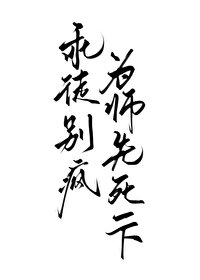 乖徒别疯
为师先死一下